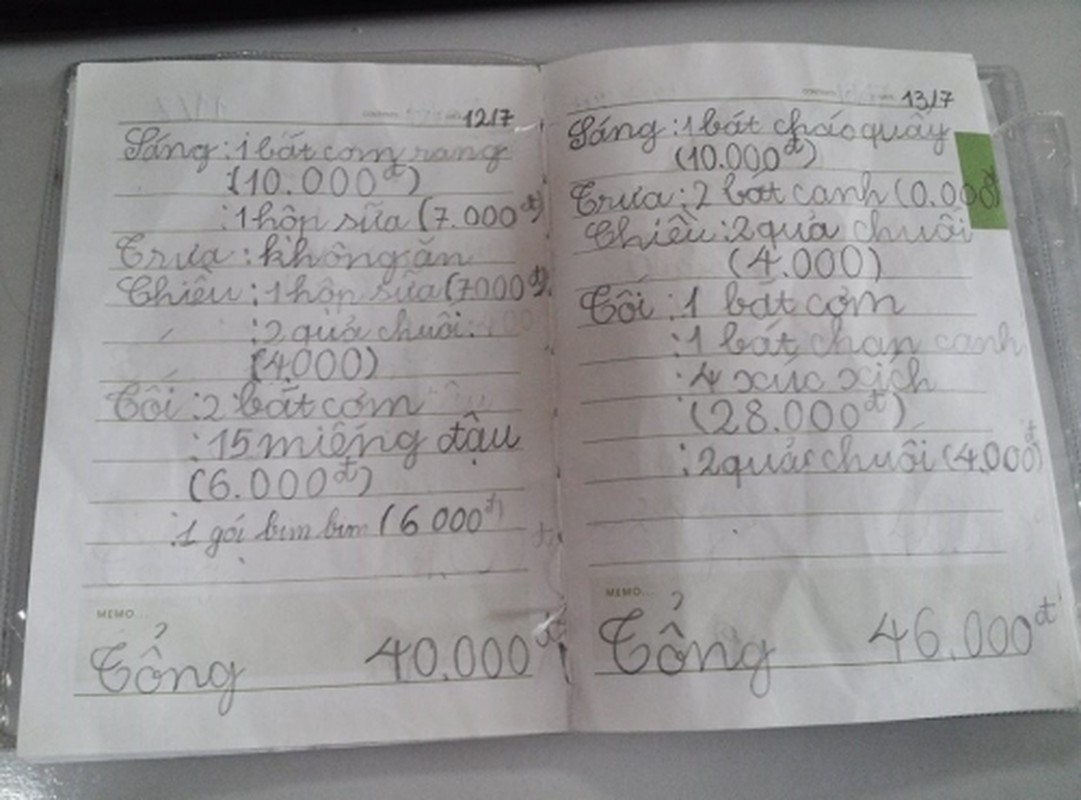 12/7
Sáng : 1 bát cơm rang
:(10.000đ)
: 1 hộp sữa (7.000đ)
Trưa : không ăn
Chiều : 1 hộp sữa (7000đ)
: 2 quả chuối :
(4.000)
Tối : 2 bát cơm
: 15 miếng đậu
(6.000đ)
: 1 gói bim bim (6 000đ)
MEMO...
Tổng 40.000đ
13/7
Sáng : 1 bát cháo quẩy
(10.000đ)
Trưa : 2 bát canh (0.000đ)
Chiều : 2 quả chuối
(4.000)
Tối : 1 bát cơm
: 1 bát chan canh
: 4 xúc xích
(28.000đ)
: 2 quả chuối (4.000đ)
MEMO...
Tổng 46.000đ